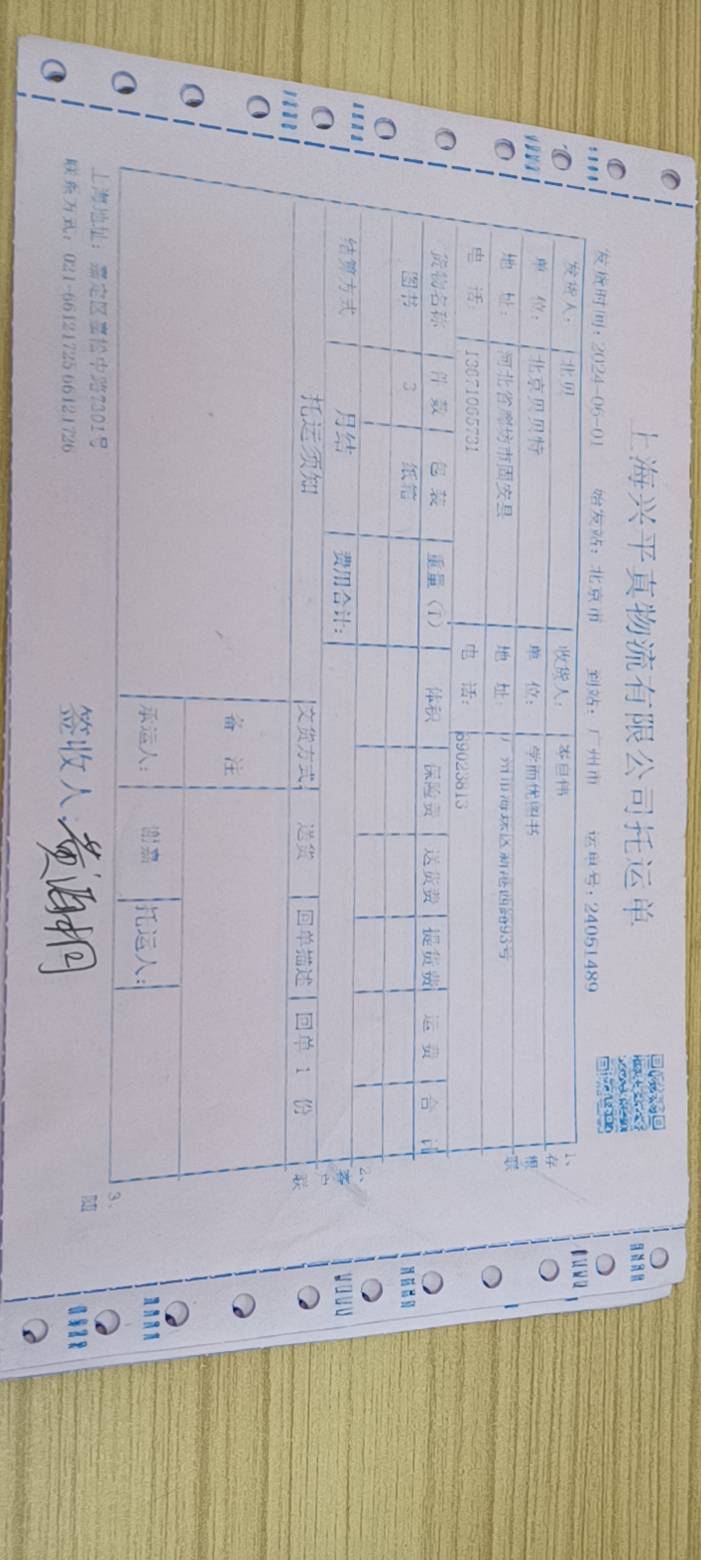 上海兴平真物流有限公司托运单
发货时间: 2024-06-01 始发站: 北京市 到站: 广州市 运单号: 24051489
发货人: 北贝 收货人:
单 位: 北京贝贝特 单 位: 学而优图书
地 址: 河北省廊坊市固安县 地 址: 广州市海珠区新港西路93号
电 话: 13671065731 电 话: 89023813
货物名称 件 数 包 装 重量(T) 体积 保险费 送货费 提货费 运 费 合 计
图书 3 纸箱
结算方式 月结 费用合计:
托运须知 交货方式 送货 回单描述 回单 1 份
备 注
承运人: 谢嘉 托运人:
上海地址: 嘉定区嘉松中路2301号
联系方式: 021-66121725 66121726
签收人:
1、存根联
2、客户联
3、随